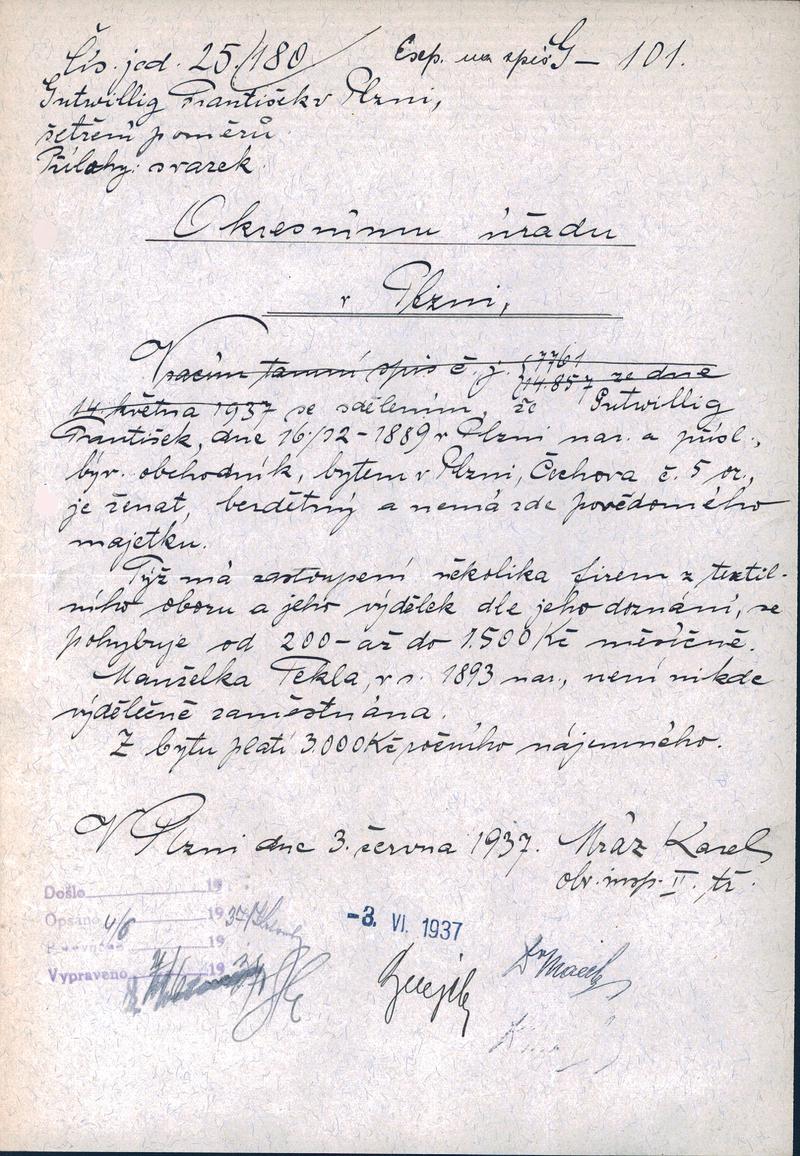 Čís. jed. 25/180 Csep. na spis G – 101.
Gutwillig František v Plzni,
šetření poměrů.
Přílohy: svazek.
Okresnímu úřadu
v Plzni,
Vracím tamní spis č. j. 7761 ze dne
14.857
14. května 1937 se sdělením, že Gutwillig
František, dne 16./12-1889 v Plzni nar. a přísl.,
býv. obchodník, bytem v Plzni, Čechova č. 5 or.,
je ženat, bezdětný a nemá zde povědomého
majetku.
Týž má zastoupení několika firem z textil-
ního oboru a jeho výdělek dle jeho doznání, se
pohybuje od 200- až do 1.500 Kč měsíčně.
Manželka Tekla, v r. 1893 nar., není nikde
výdělečně zaměstnána.
Z bytu platí 3.000 Kč ročního nájemného.
V Plzni dne 3. června 1937. Mráz Karel
obv. insp. II. tř.
Došlo 19
Opsáno 4/6 1937
19
Vypraveno 19
-3. VI. 1937